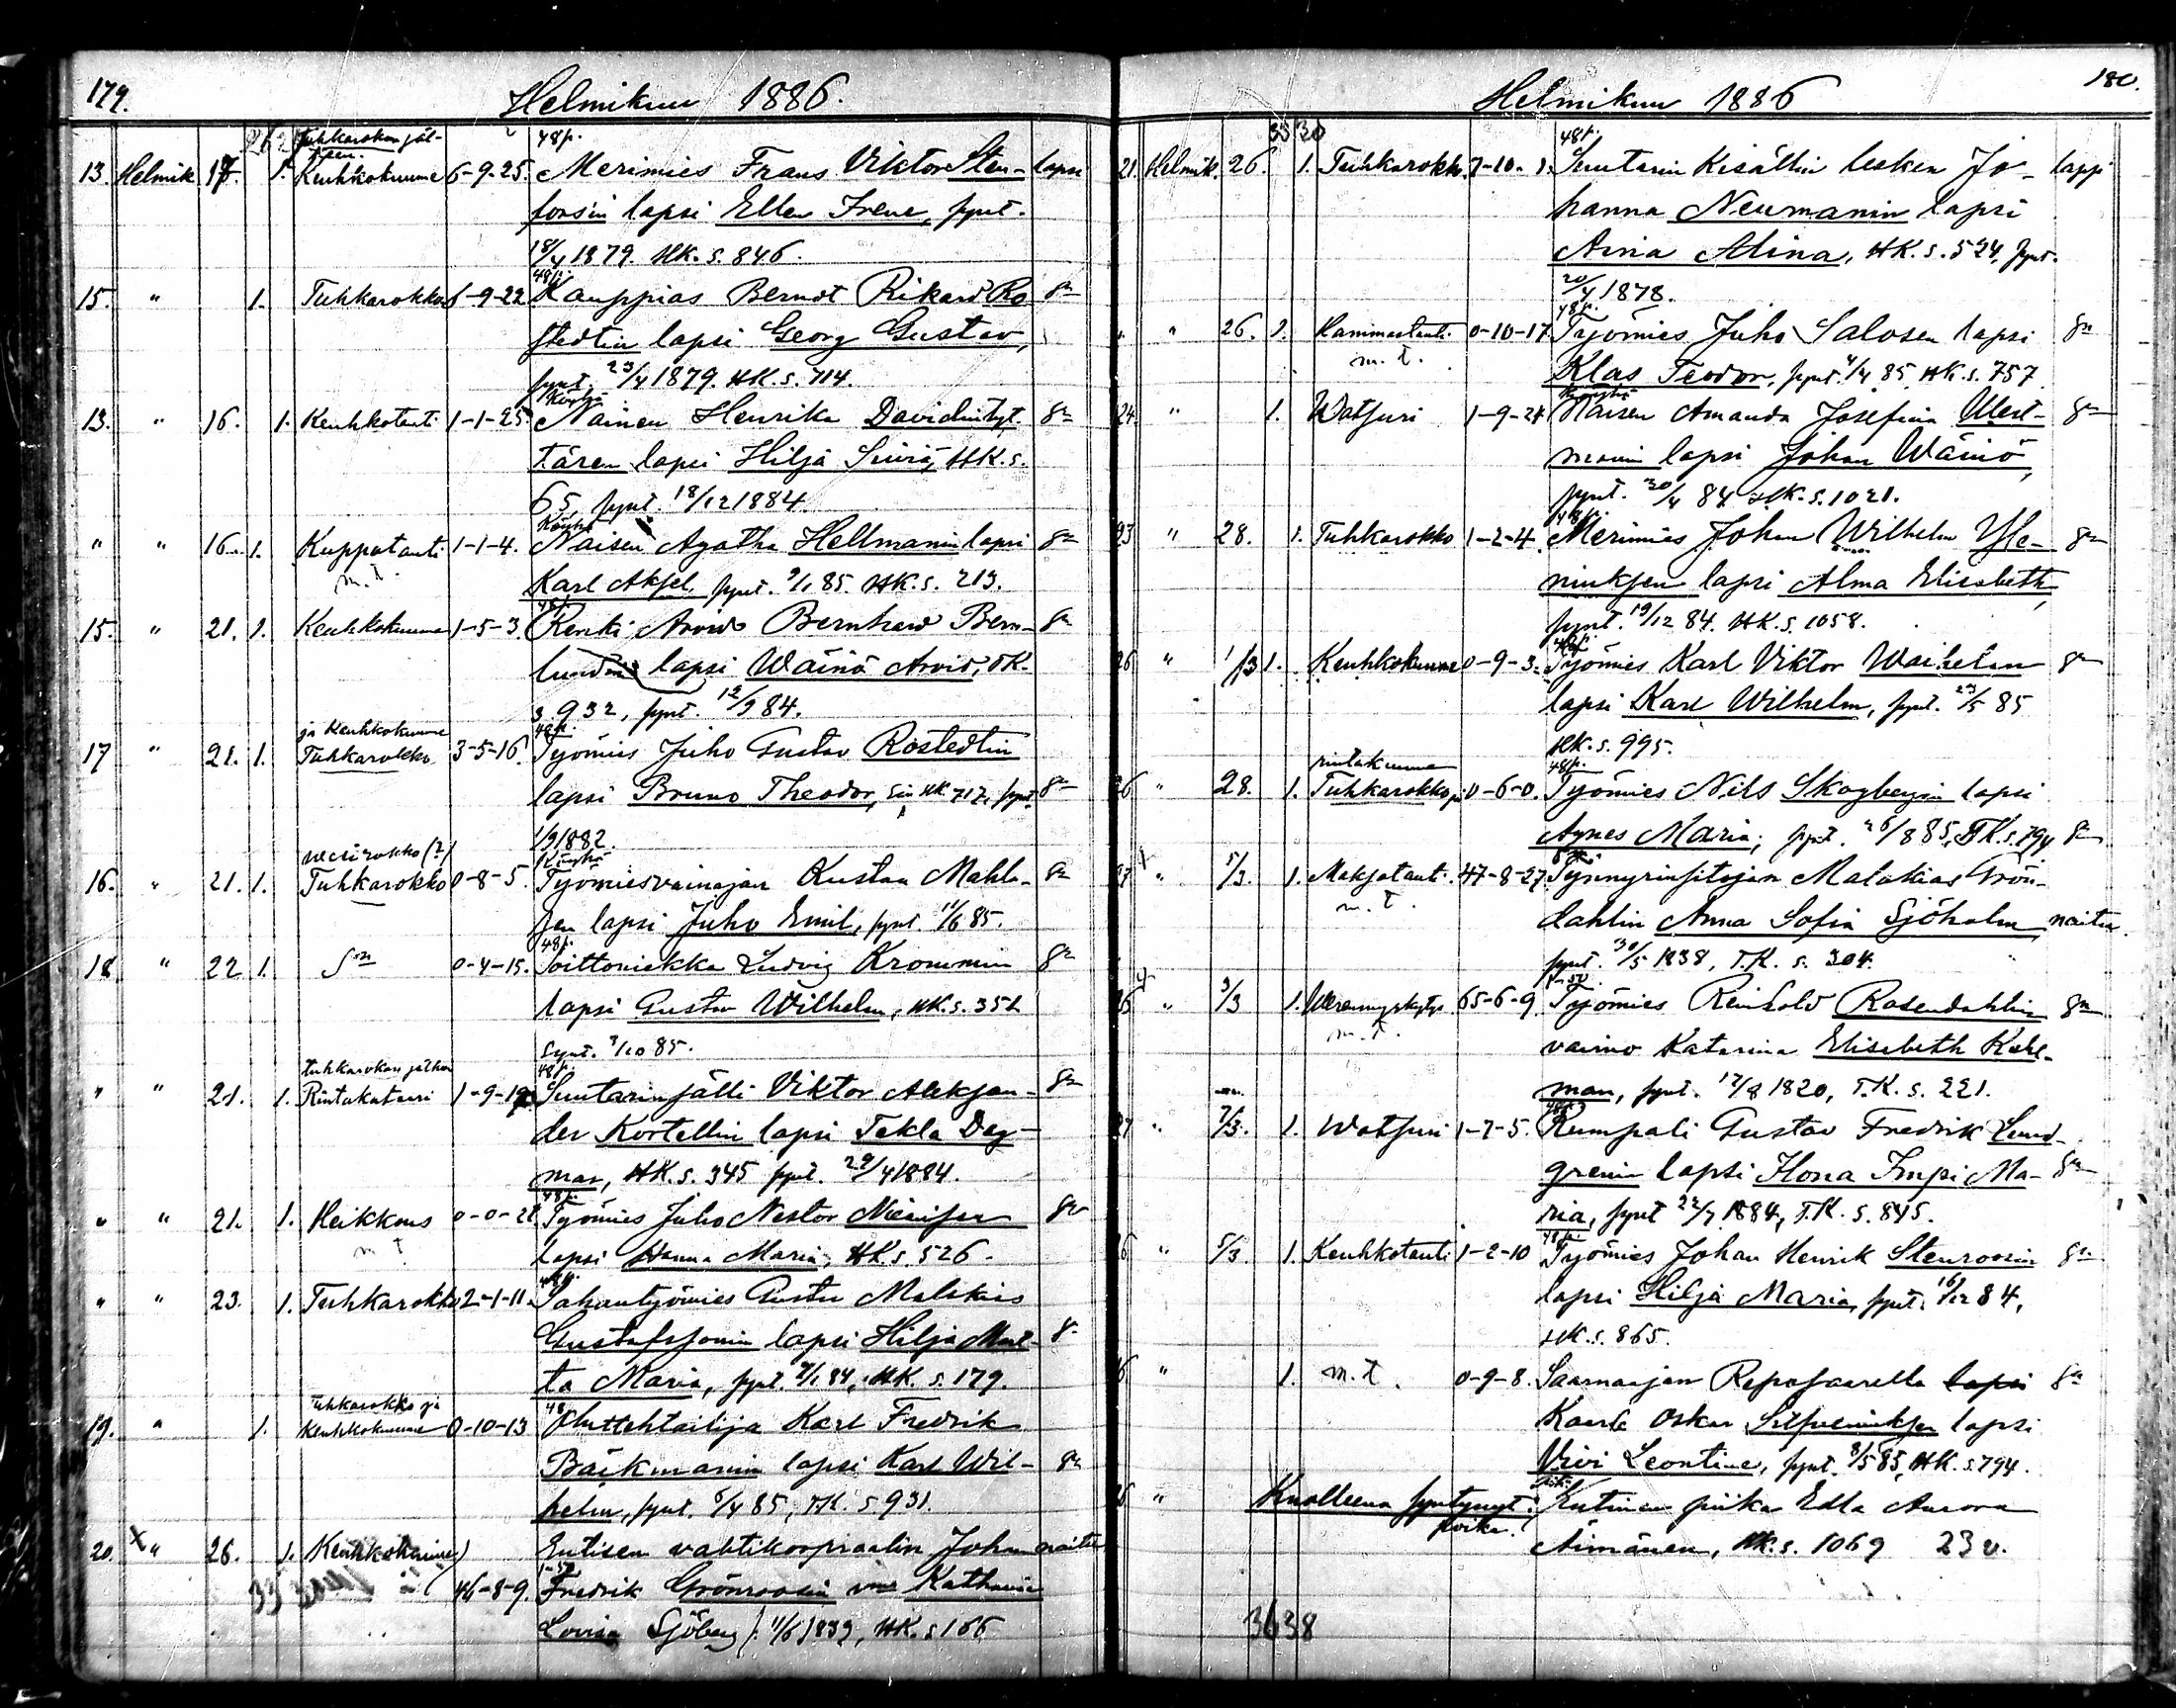 179. Helmikuu 1886.
Tuhkarokon jäl-
13. Helmik. 17. 1. Keuhkokuume 6-9-25. 48p. Merimies Frans Viktor Sten- lapsi
forsin lapsi Ellen Irene, synt.
18/4 1879. HK. s. 846.
15. " 1. Tuhkarokko 6-9-22 48p. Kauppias Berndt Rikard Ro 8n
stedtin lapsi Georg Gustav,
synt. 23/4 1879. HK. s. 714.
13. " 16. 1. Keuhkotauti 1-1-25. Köyhä Nainen Henrika Davidintyt- 8n
tären lapsi Hilja Siiviä, HK. s.
65, synt. 18/12 1884.
" " 16. 1. Kuppatauti 1-1-4. Köyhä Naisen Agatha Hellmanin lapsi 8n
m.t. Karl Aksel, synt. 9/1 85. HK. s. 213.
15. " 21. 1. Keuhkokuume 1-5-3. 48p. Renki Arvid Bernhard Bern- 8n
lundin lapsi Wäinö Arvid, TK.
s. 932, synt. 12/9 84.
ja Keuhkokuume
17 " 21. 1. Tuhkarokko 3-5-16. 48p. Työmies Juho Gustav Rostedtin
lapsi Bruno Theodor, HK. 717, synt. 8n
1/9 1882.
vesirokko (?)
16. " 21. 1. Tuhkarokko 0-8-5. Köyhä Työmiesvainajan Kustaa Mahl- 8n
sen lapsi Juho Emil, synt 11/6 85.
18 " 22 1. Sn 0-4-15. 48p. Soittoniekka Ludvig Krommin 8n
lapsi Gustav Wilhelm, HK. s. 352
synt. 7/10 85.
tuhkarokon jälkeen
" " 21. 1. Rintakatarri 1-9-19 48p. Suutarinsälli Viktor Aleksan- 8n
der Kortellin lapsi Tekla Dag-
mar, HK. s. 345 synt. 29/4 1884.
" " 21. 1. Heikkous 0-0-21 48p. Työmies Juho Nestor Niemisen 8n
m t lapsi Hanna Maria, HK. s. 526.
" " 23. 1. Tuhkarokko 2-1-11. 48p. Sahantyömies Gustav Malakias
Gustafssonin lapsi Hilja Mart- 8n
ta Maria, synt. 7/1 84, HK. s. 179.
tuhkarokko ja
19. " 1. Keuhkokuume 0-10-13 48 Oluttehtailija Karl Fredrik
Bäckmanin lapsi Karl Wil- 8n
helm, synt. 5/4 85, TK. s 931.
20. x " 26. 1. Keuhkokuume Entisen vahtikorpraalin Johan naitu
46-8-9. Fredrik Grönroosin vmo Katharina
Lovisa Sjöberg 11/6 1839, HK. s 166

Helmikuu 1886 180.
33 30
21. Helmik. 26. 1. Tuhkarokko. 7-10-1. 48p. Suutarin Kisällin lesken Jo- lapsi
hanna Neumanin lapsi
Aina Alina, HK. s. 524, synt.
20/4 1878.
" " 26. 1. Hammastauti 0-10-17. 48p. Työmies Juho Salosen lapsi 8n
m. t. Klas Teodor, synt. 4/4 85, HK. s. 757
24. " 1. Watsuri 1-9-24 Köyhä Naisen Amanda Josefina West- 8n
manin lapsi Johan Wäinö,
synt. 30/4 84 HK. s. 1021.
23 " 28. 1. Tuhkarokko 1-2-4. 48p. Merimies Johan Wilhelm Yle- 8n
ninksen lapsi Alma Elisabeth,
synt. 19/12 84. HK. s. 1058.
26 " 1/3 1. Keuhkokuume 0-9-3. 48p. Työmies Karl Viktor Waihelan 8n
lapsi Karl Wilhelm, synt. 23/5 85
HK. s. 995.
rintakuume
26 " 28. 1. Tuhkarokko ja 0-6-0. 48p. Työmies Nils Skogbergin lapsi
Agnes Maria, synt. 26/8 85, HK. s. 794 8n
27 " 5/3. 1. Maksatauti. 47-8-27. Tynnyrinsitojan Malakias Grön-
m. t. dahlin Anna Sofia Sjöholm naitu.
synt. 30/5 1838, T.K. s. 304.
25 " 3/3 1. Werenmyrkytys 65-6-9. Työmies Reinhold Rosendahlin 8n
m. t. vaimo Katarina Elisabeth Kahl-
man, synt. 17/8 1820, T.K. s. 221.
27 " 7/3. 1. Watsuri 1-7-5. 48p. Rumpali Gustav Fredrik Lund-
grenin lapsi Ilona Impi Ma- 8n
ria, synt 22/7 1884, T.K. s. 845.
26 " 5/3. 1. Keuhkotauti 1-2-10 48p. Työmies Johan Henrik Stenroosin 8n
lapsi Hilja Maria, synt. 16/12 84,
HK. s. 865.
16 " 1. m. t. 0-9-8. Saarnaajan Reposaarella lapsi 8n
Kaarle Oskar lapsi
Vivi Leontine, synt. 8/5 85, HK. s. 794.
26 " Kuolleena syntynyt: Itsn. Kutinen piika Edla Aurora
poika. Äimänen, HK. s. 1069 23 v.
3638